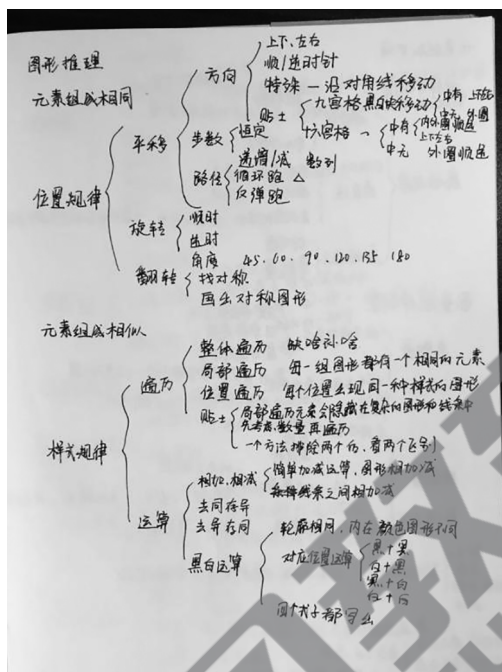 图形推理
元素组成相同
位置规律
平移
方向
上下、左右
顺/逆时针
特殊—沿对角线移动
贴士
九宫格黑块移动
中有 上下左右
中无 外圈
十六宫格—
中有
内外圈顺逆
上下左右
中无 外圈顺逆
步数
恒定
递增/减 数列
路径
循环跑 △
反弹跑
旋转
顺时
逆时
角度 45.60.90.120.135 180
翻转
找对称
画出对称图形
元素组成相似
样式规律
遍历
整体遍历 缺啥补啥
局部遍历 每一组图形都有一个相同的元素
位置遍历 每个位置出现同一种样式的图形
贴士
局部遍历元素会隐藏在复杂的图形和线条中
先考虑数量再遍历
一个方法排除两个后,看两个区别
运算
相加、相减
简单加减运算、图形相加减
每排线条之间相加减
去同存异
去异存同
黑白运算
轮廓相同,内在颜色图形不同
对应位置运算
黑+黑
白+黑
黑+白
白+白
四个式子都写出